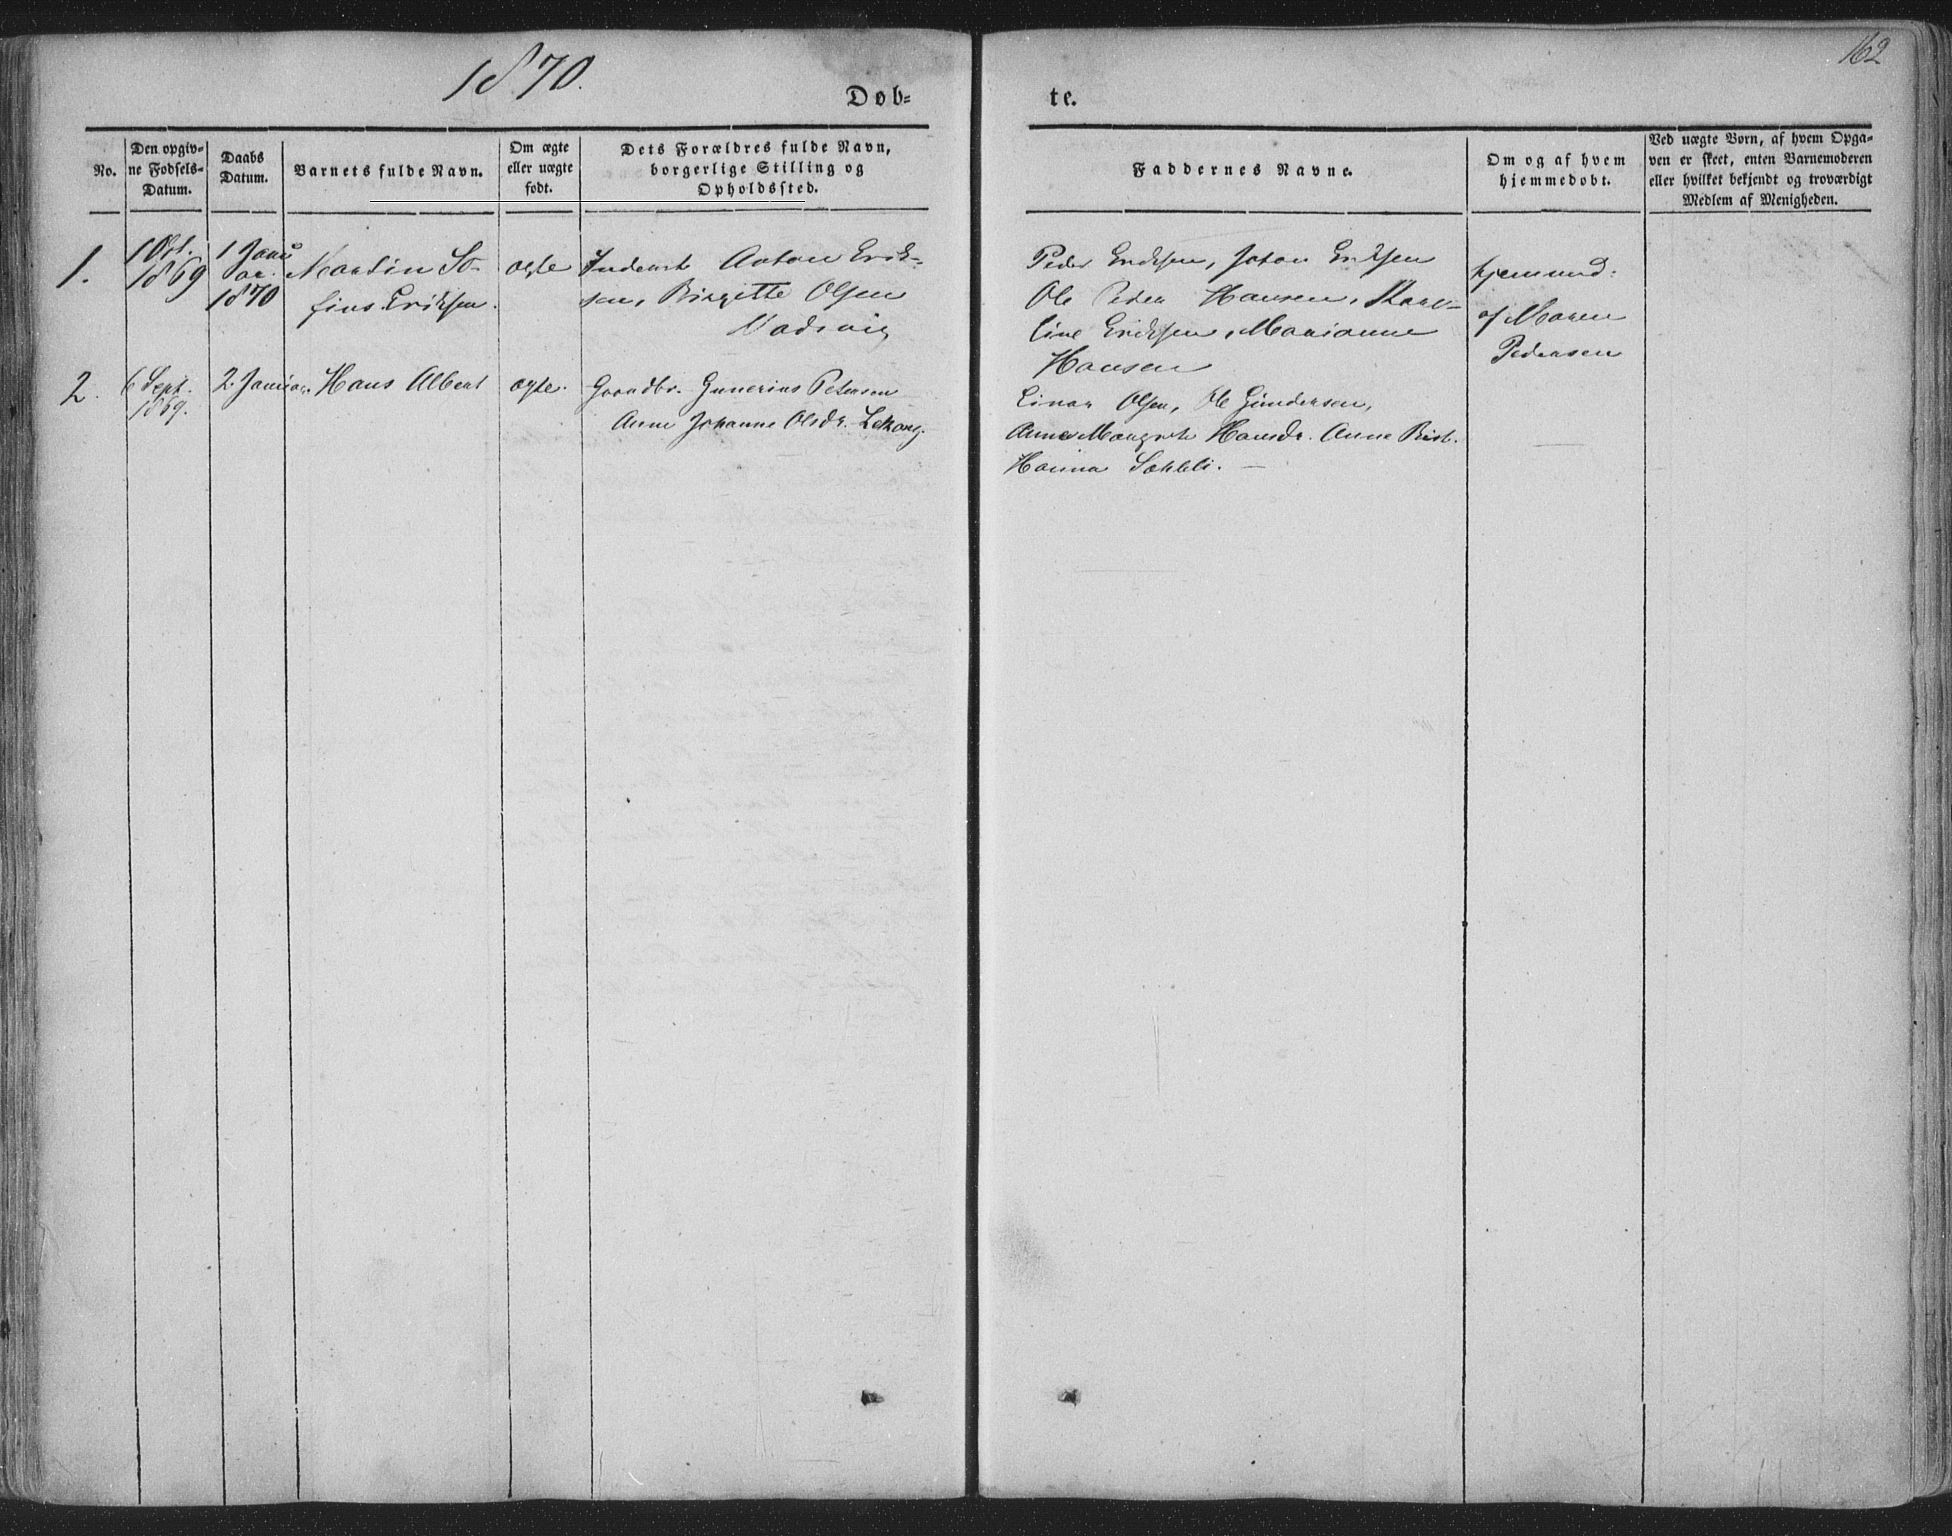 1870.
162
Døb-
te.
No.
Den opgiv-
ne Fødsels-
Datum.
Daabs
Datum.
Barnets fulde Navn.
Om ægte
eller uægte
født.
Dets Forældres fulde Navn,
borgerlige Stilling og
Opholdssted.
Faddernes Navne.
Om og af hvem
hjemmedøbt.
Ved uægte Børn, af hvem Opga-
ven er skeet, enten Barnemoderen
eller hvilket bekjendt og troværdigt
Medlem af Menigheden.
1.
1 Oct.
1869
1 Janu
ar.
1870
Martin So-
fius Eriksen.
ægte
Inderst Anton Erik-
sen, Birgitte Olsen
Peder Eriksen, Johan Eriksen
Ole Peder Hansen, Kare-
line Eriksen, Marianne
Hansen
hjemmed:
af Maren
Pedersen
2.
6 Sept.
1869.
2. Januar.
Hans Albert
ægte.
Gaardbr. Gunerius Petersen
Anne Johanne Olsdr. Lekang.
Einar Olsen, Ole Gundersen,
Anne Margrete Hansdr. Anne Birit.
Hanna